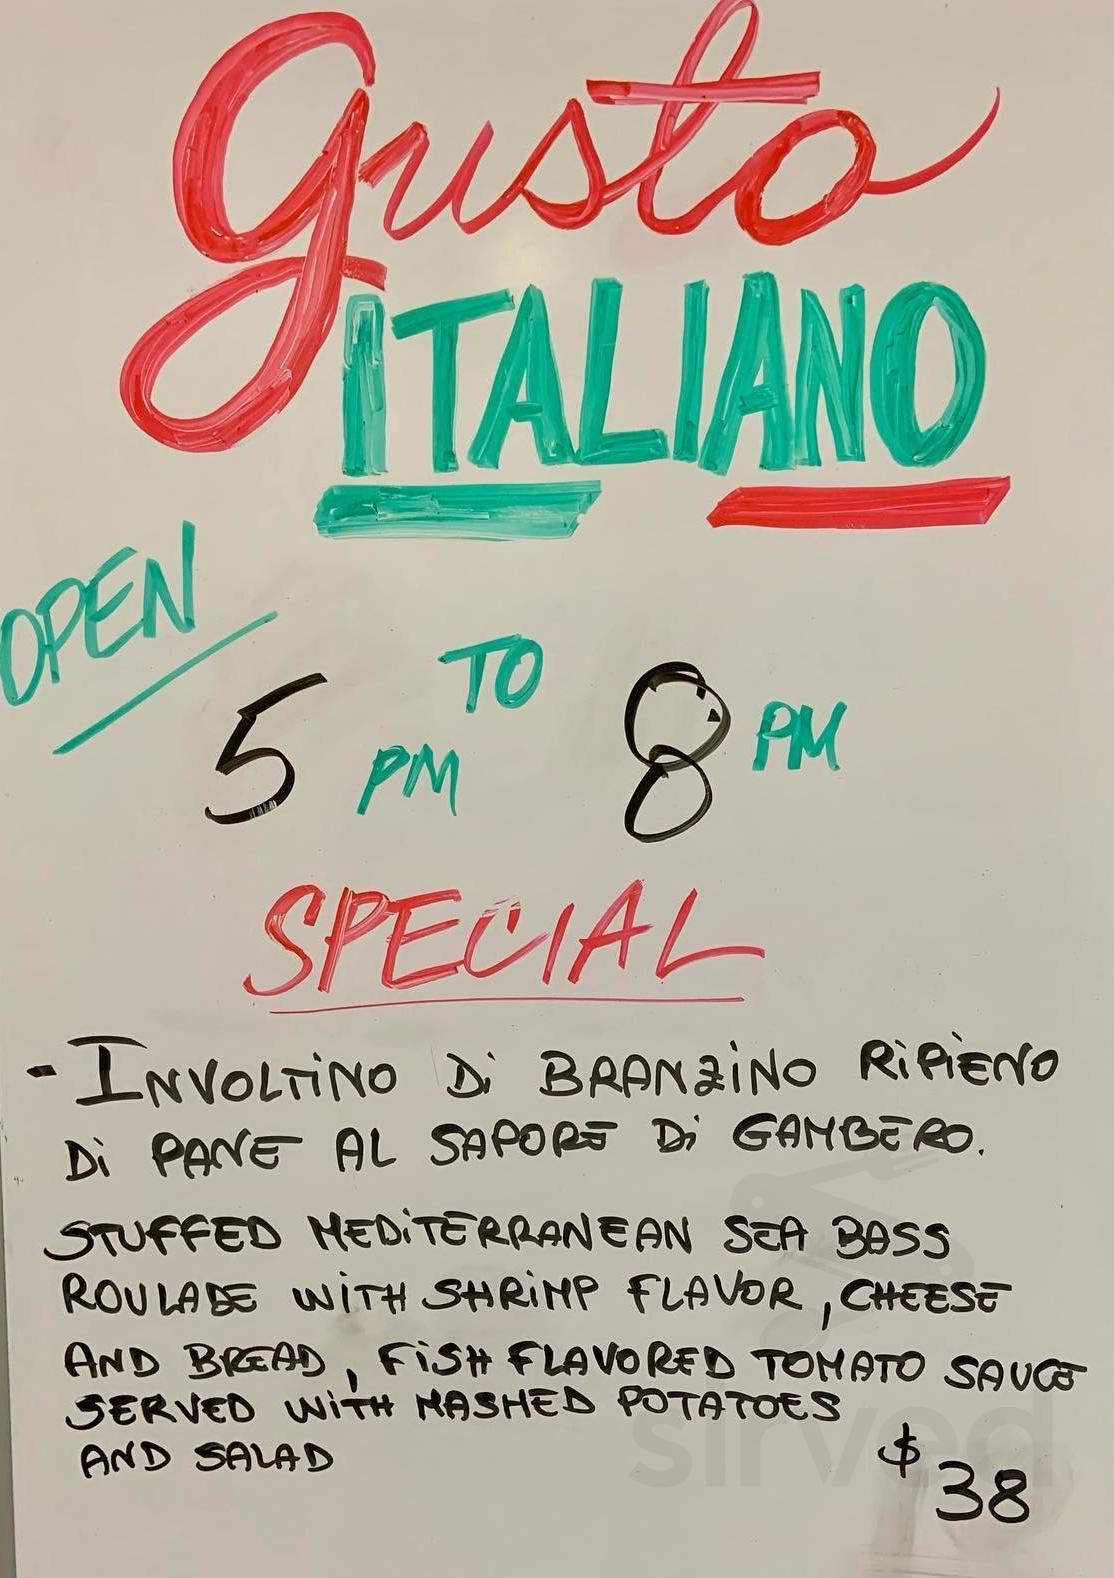 Gusto
ITALIANO
OPEN
5 PM TO 8 PM
SPECIAL
- INVOLTINO Di BRANZiNO RiPiENO
Di PANE AL SAPORE Di GAMBERO.
STUFFED MEDiTERRANEAN SEA BASS
ROULADE WiTH SHRiMP FLAVOR, CHEESE
AND BREAD, FiSH FLAVORED TOMATO SAUCE
SERVED WiTH MASHED POTATOES
AND SALAD
$38
sirved